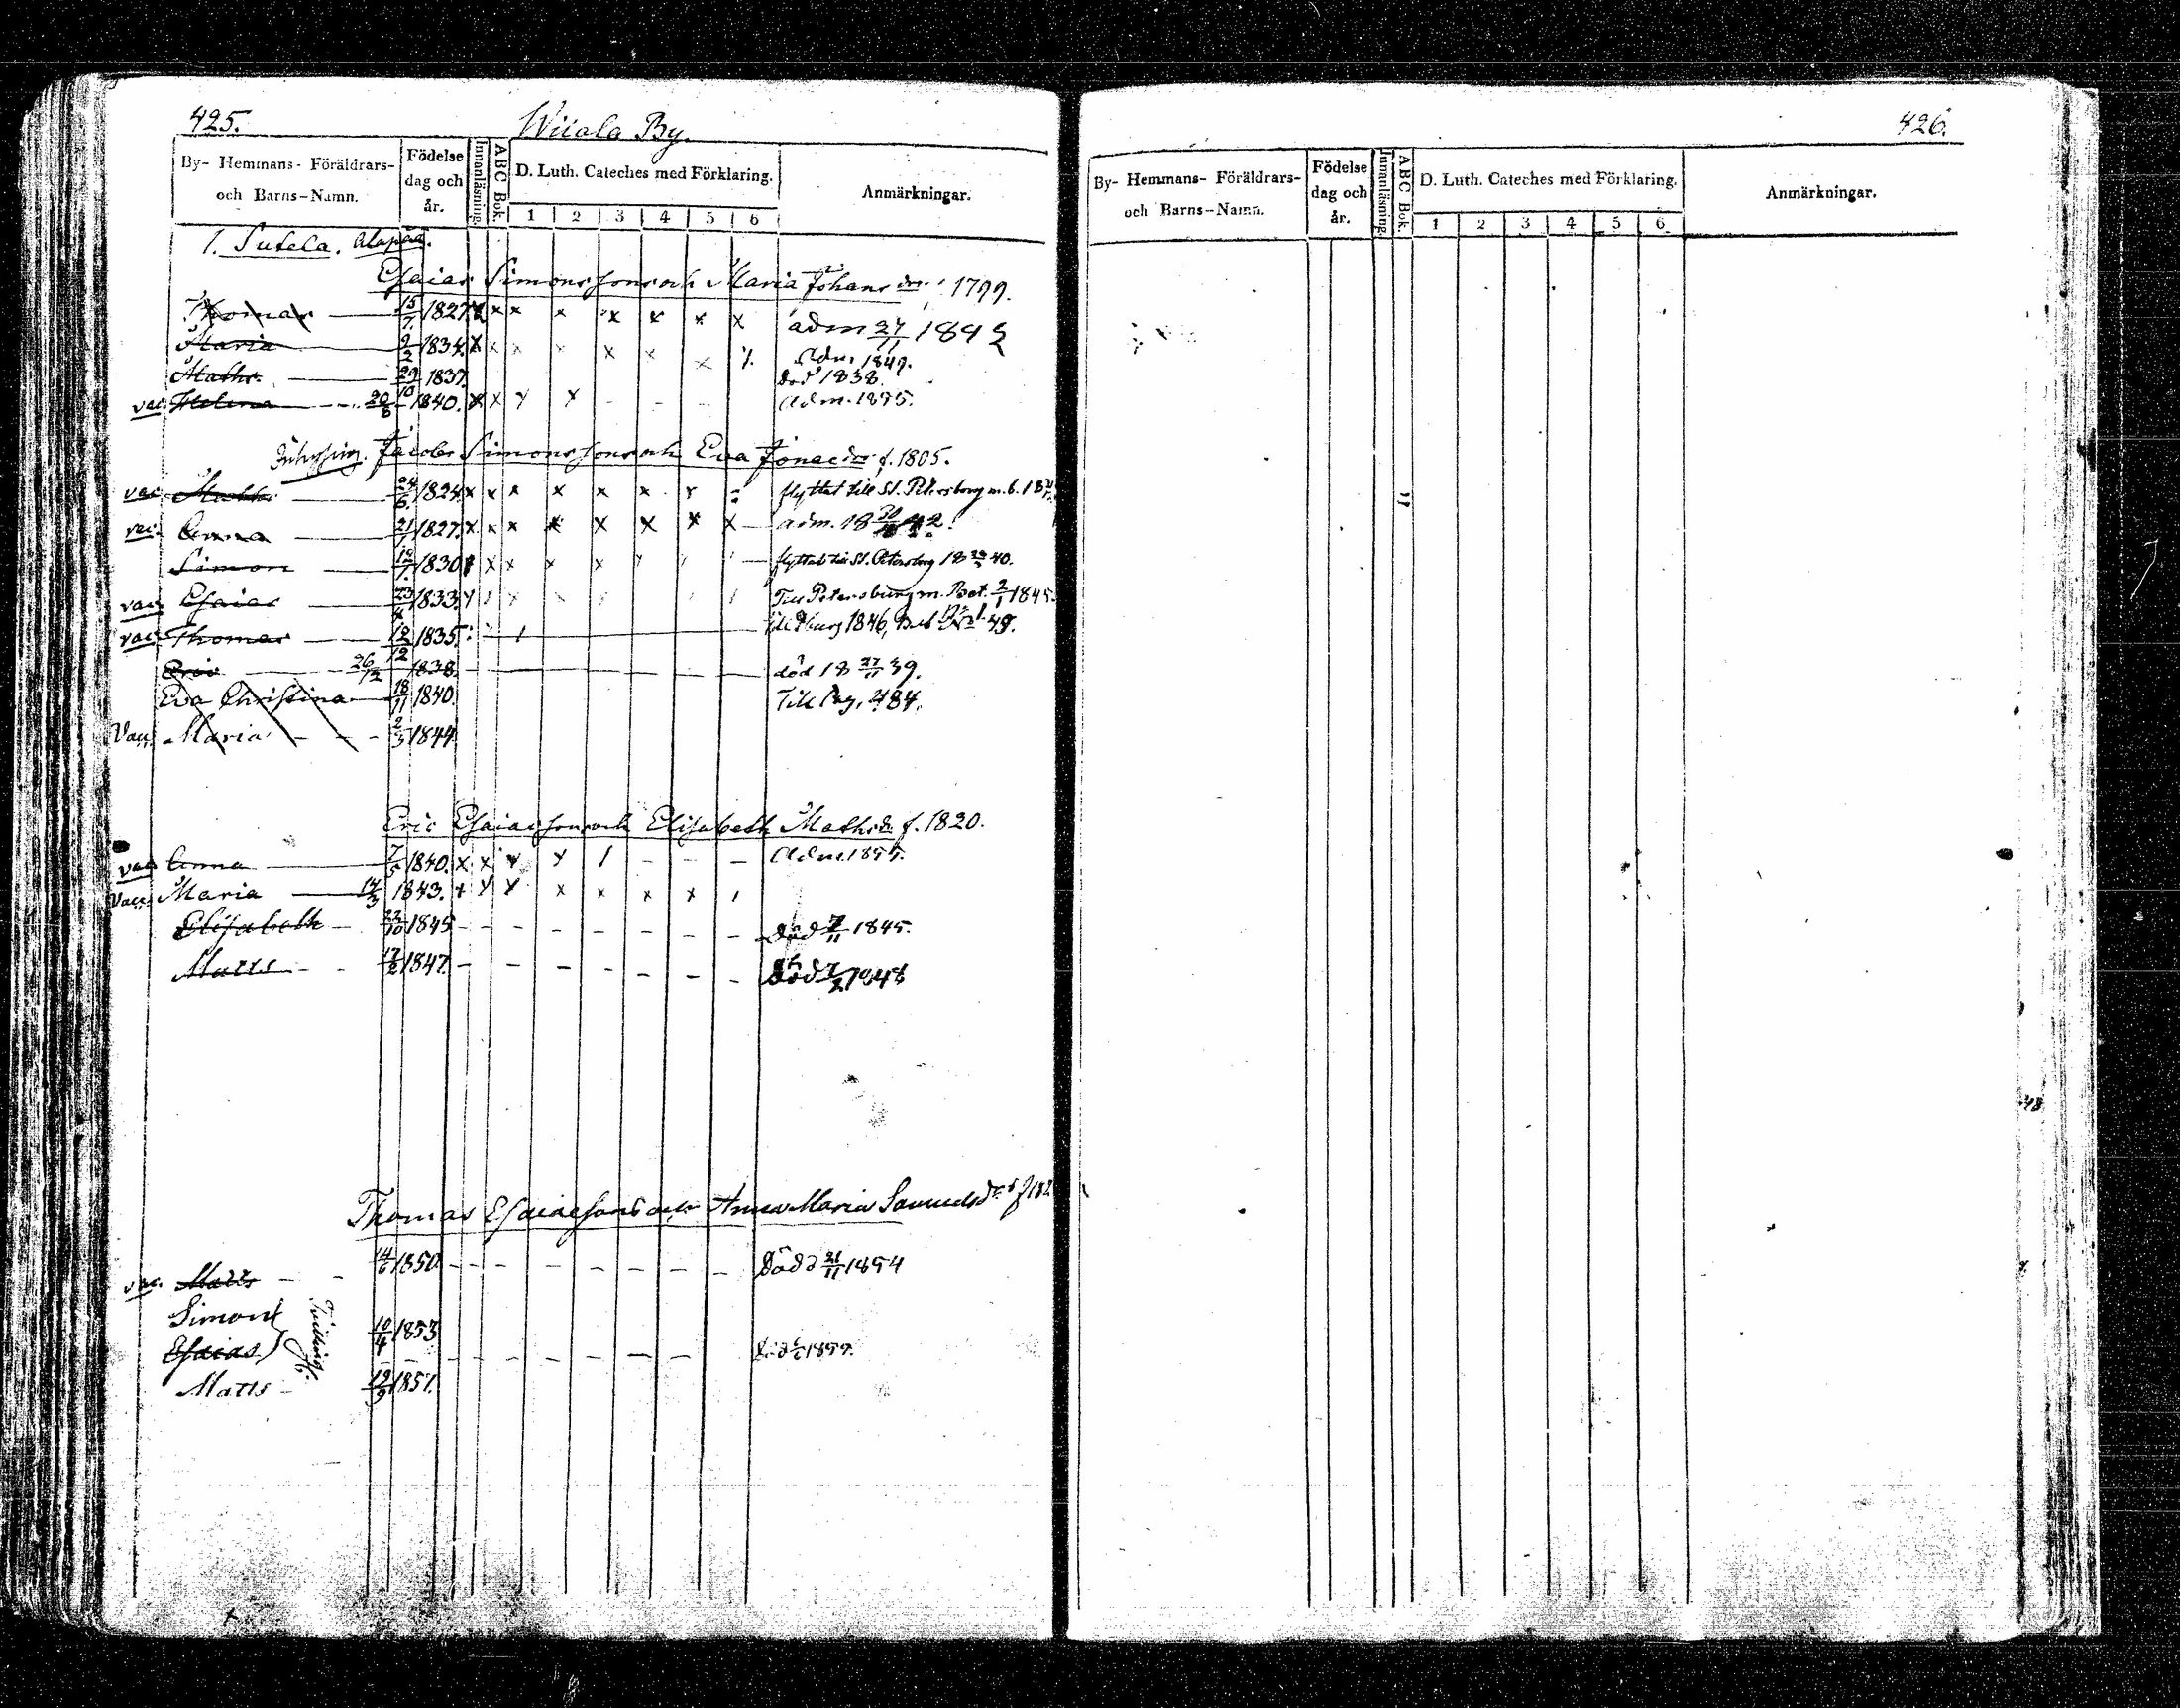 425.
Wiiala By.
By- Hemmans- Föräldrars-
och Barns-Namn.
Födelse
dag och
år.
Innanläsning.
ABC Bok.
D. Luth. Cateches med Förklaring.
1 2 3 4 5 6
Anmärkningar.
1. Sutela. Alapää.
Esaias Simonsson och Maria Johans dr 1799.
Thomas 15/7 1827. x x x x x x x adm 27/11 1842
Maria 2/2 1834. x x x x x x Adm. 1849.
Maths 29/10 1837. död 1838.
vac. Helena 20/5 1840. x x y x - - - Adm. 1855.
Inhysing. Jacob Simonsson och Eva Jonæ dr f. 1805.
vac 24/6 1824. x x x x x x flyttat till St. Petersborg m. b.
vac. Anna 21/1 1827. x x x x x x x x adm. 18 42.
Simon 12/7 1830 x x x x flyttat till St. Petersborg 18 40.
vac. Esaias 23/4 1833. Till Petersburg m. Bet. 2/1 1845.
vac. Thomas 12/12 1835. 1846, 49.
Eric 26/12 1838. död 18 27/11 39.
Eva Christina 18/11 1840. Till Pag. 484.
Vac. Maria - - - 2/3 1844
Eric Esaiasson och Elisabeth Mathsd. f. 1820.
vac Anna 7/5 1840. x x y y / - - - Adm. 1855.
Vac. Maria 14/3 1843. + y y x x x x
Elisabeth 22/10 1845 - - - - - - - död 7/11 1845.
Matts - - 17/2 1847. - - - - - - - död 7/2 1848
Thomas Esaiasson och Anna Maria Samuelsd f 182
vac. Matts - - 14/6 1850. - - - - - - - Död 21/11 1854
Simon
Tvillingar
10/4 1853
Esaias - - - - - - - 1857.
Matts - 19/9 1857.
426.
By- Hemmans- Föräldrars-
och Barns-Namn.
Födelse
dag och
år.
Innanläsning.
ABC Bok.
D. Luth. Cateches med Förklaring.
1 2 3 4 5 6
Anmärkningar.